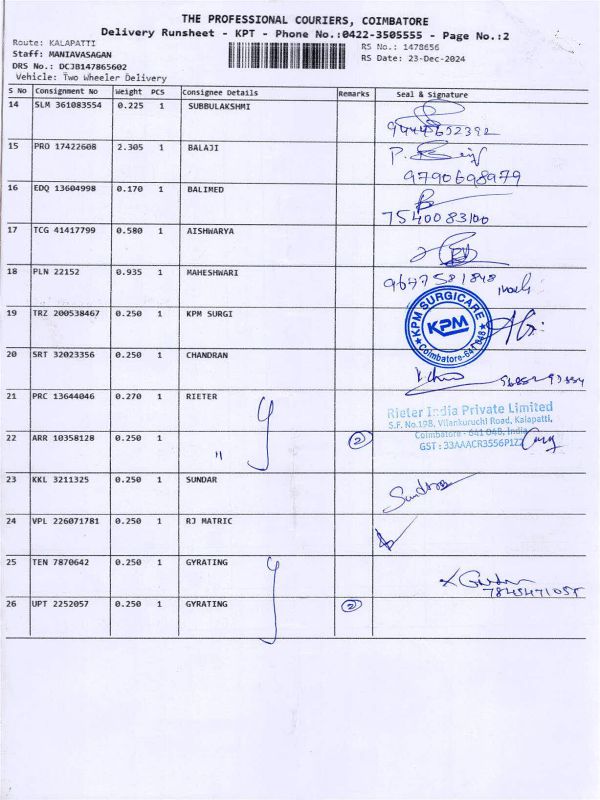 THE PROFESSIONAL COURIERS, COIMBATORE
Delivery Runsheet - KPT - Phone No.:0422-3505555 - Page No.:2
Route: KALAPATTI
RS No.: 1478656
Staff: MANIAVASAGAN
RS Date: 23-Dec-2024
DRS No.: DCJB147865602
Vehicle: Two Wheeler Delivery
S No Consignment No Weight PCS Consignee Details Remarks Seal & Signature
14 SLM 361083554 0.225 1 SUBBULAKSHMI
15 PRO 17422608 2.305 1 BALAJI
9790698979
16 EDQ 13604998 0.170 1 BALIMED
7540083100
17 TCG 41417799 0.580 1 AISHWARYA
18 PLN 22152 0.935 1 MAHESHWARI
9647581848
19 TRZ 200538467 0.250 1 KPM SURGI
KPM SURGICARE
KPM
Coimbatore-641 048
20 SRT 32023356 0.250 1 CHANDRAN
21 PRC 13644046 0.270 1 RIETER
Rieter India Private Limited
S.F. No.198, Vilankuruchi Road, Kalapatti,
Coimbatore - 641 048, India
GST : 33AAACR3556P1ZZ
22 ARR 10358128 0.250 1 " 2
23 KKL 3211325 0.250 1 SUNDAR
24 VPL 226071781 0.250 1 RJ MATRIC
25 TEN 7870642 0.250 1 GYRATING
7845471055
26 UPT 2252057 0.250 1 GYRATING 2